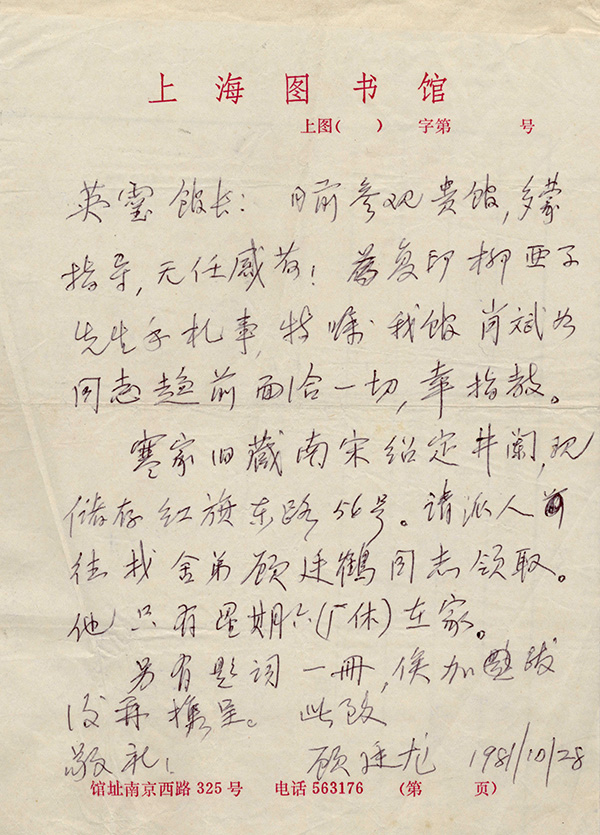 上海图书馆
上图( ) 字第 号
英霆馆长：日前参观贵馆，多蒙
指导，无任感荷！为复印柳亚子
先生手札事，特嘱我馆肖斌如
同志趋前面洽一切，幸指教。
寒家旧藏南宋绍定井阑，现
储存红旗东路56号。请派人前
往找舍弟顾廷鹤同志领取。
他只有星期六(厂休)在家。
另有题词一册，俟加题跋
后再携呈。此致
敬礼！ 顾廷龙 1981/10/28
馆址南京西路325号 电话563176 (第 页)